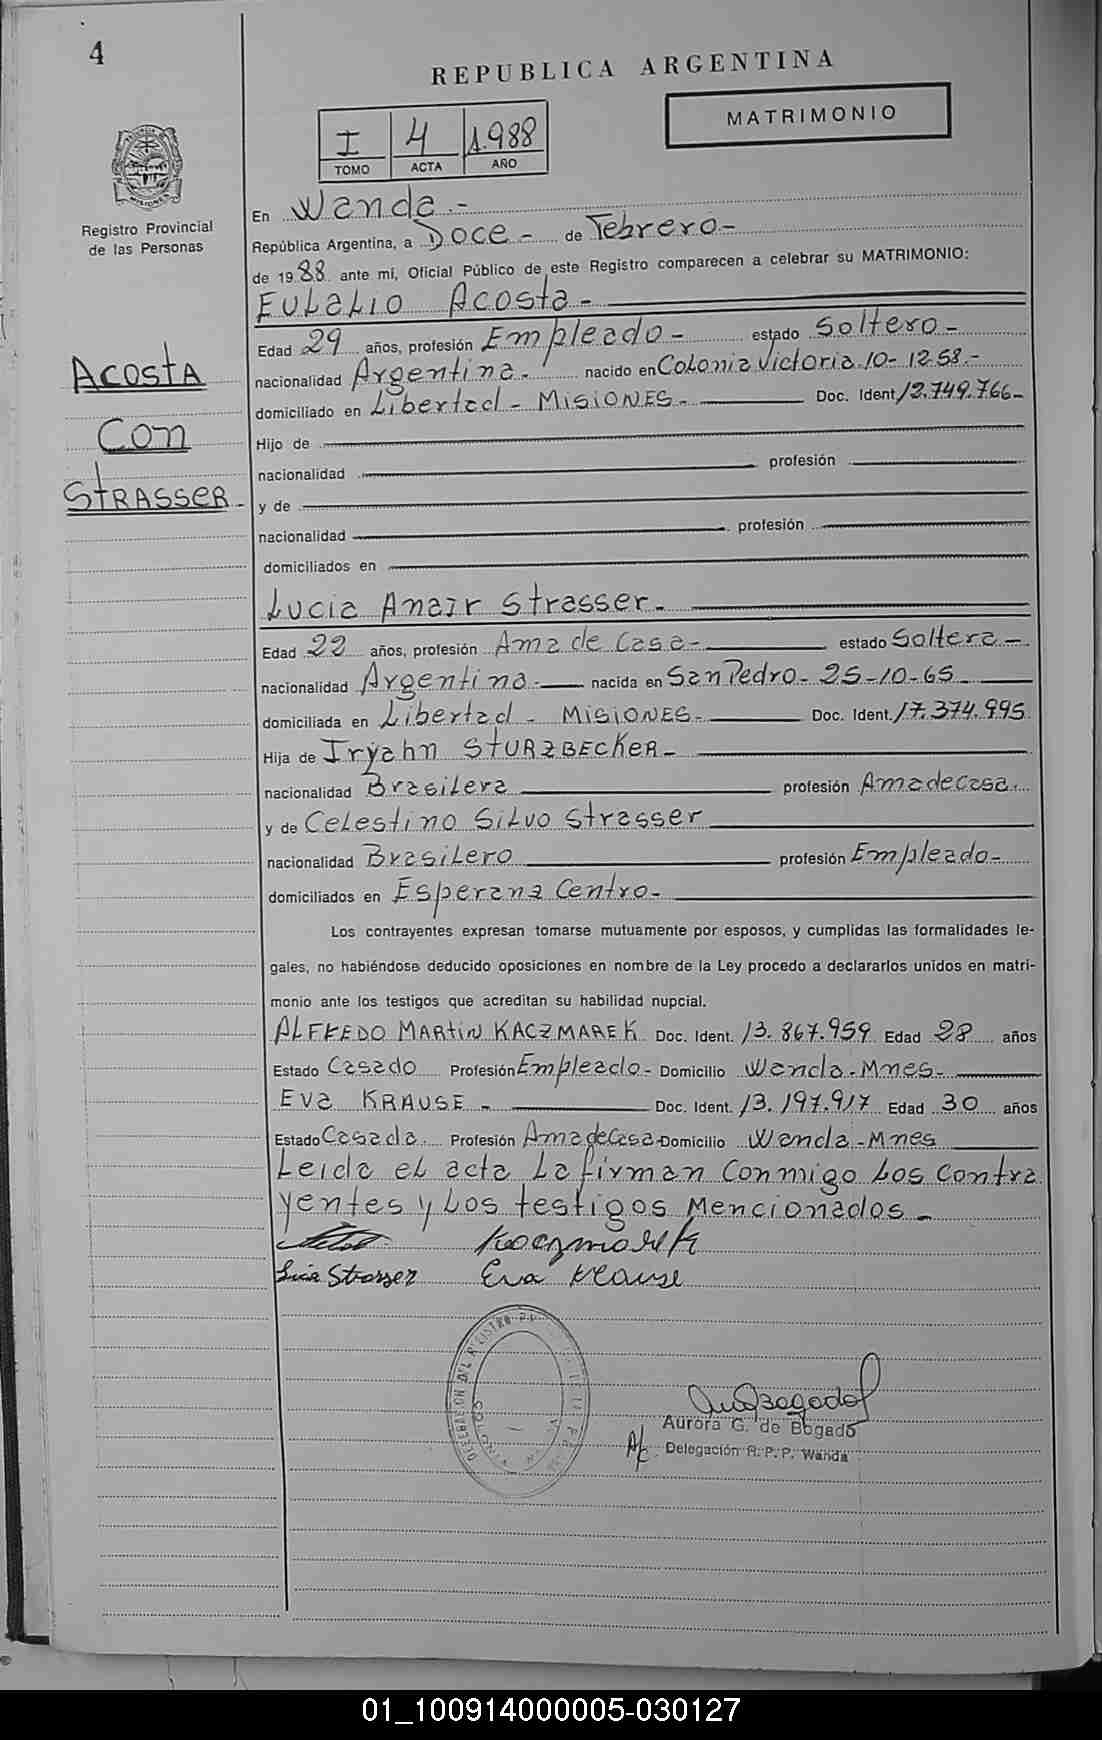 4
REPUBLICA ARGENTINA
MATRIMONIO
I 4 1.988
TOMO ACTA AÑO
Registro Provincial
de las Personas
En Wanda.-
República Argentina, a Doce- de Febrero-
de 1988 ante mí, Oficial Público de este Registro comparecen a celebrar su MATRIMONIO:
EULALIO Acosta-
Edad 29 años, profesión Empleado- estado Soltero-
nacionalidad Argentina.- nacido en Colonia Victoria.10-12.58.-
domiciliado en Libertad- MISIONES- Doc. Ident. 12.749.766-
Acosta
Con
STRASSER-
Hijo de
nacionalidad profesión
y de
nacionalidad profesión
domiciliados en
Lucia Anair Strasser-
Edad 22 años, profesión Ama de Casa- estado Soltera-
nacionalidad Argentina- nacida en San Pedro- 25-10-65
domiciliada en Libertad - MISIONES- Doc. Ident. 17.374.995
Hija de Iryahn STURZBECKER-
nacionalidad Brasilera profesión Ama de casa.
y de Celestino Silvo Strasser
nacionalidad Brasilero profesión Empleado-
domiciliados en Esperana Centro-
Los contrayentes expresan tomarse mutuamente por esposos, y cumplidas las formalidades le-
gales, no habiéndose deducido oposiciones en nombre de la Ley procedo a declararlos unidos en matri-
monio ante los testigos que acreditan su habilidad nupcial.
ALFREDO MARTIN KACZMAREK Doc. Ident. 13.867.959 Edad 28 años
Estado Casado Profesión Empleado- Domicilio Wanda-Mnes-
EVA KRAUSE - Doc. Ident. 13.197.917 Edad 30 años
Estado Casada. Profesión Ama de Casa- Domicilio Wanda-Mnes
Leida el acta La firman Conmigo Los Contra
yentes y Los testigos Mencionados-
Kaczmarek
Strasser Eva Krause
Aurora G. de Bogado
A/c Delegación R. P. P. Wanda
01_100914000005-030127